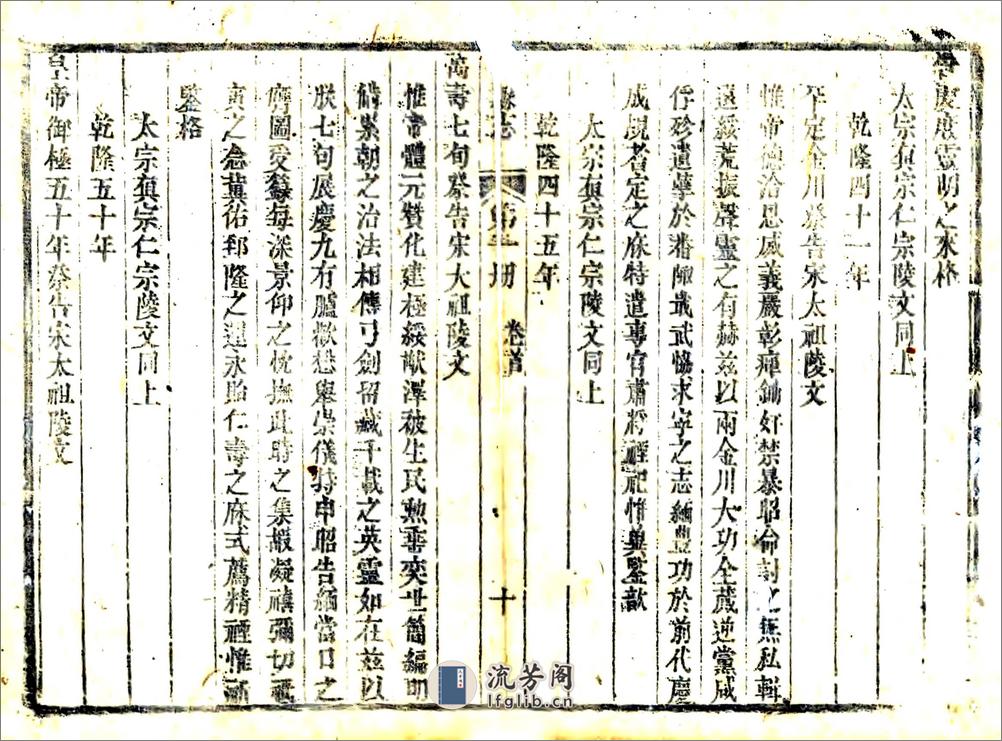 慶度靈明之來格
太宗眞宗仁宗陵文同上
乾隆四十一年
平定金川祭告宋太祖陵文
惟帝德洽恩威義嚴彰癉鋤奸禁暴昭命討之無私輯
遠綏荒振聲靈之有赫茲以兩金川大功全蕆逆黨咸
俘殄遺孽於番陬戢武協求寧之志緬豐功於前代慶
成規者定之庥特遣專官肅將禋祀惟與鑒歆
太宗眞宗仁宗陵文同上
乾隆四十五年
縣志 第一册 卷首 十
萬壽七旬祭告宋大祖陵文
惟帝體元贊化建極綏猷澤被生民勲垂奕世簡編明
備累朝之治法相傳弓劍留藏千載之英靈如在茲以
朕七旬展慶九有臚歡懋舉崇儀特申昭告緬當日之
膺圖受籙每深景仰之忱撫此時之集嘏凝禧彌切祗
寅之念冀佑郅隆之運永貽仁壽之庥式薦精禋惟祈
鑒格
太宗眞宗仁宗陵文同上
乾隆五十年
皇帝御極五十年祭告宋太祖陵文
流芳阁
lfglib.cn